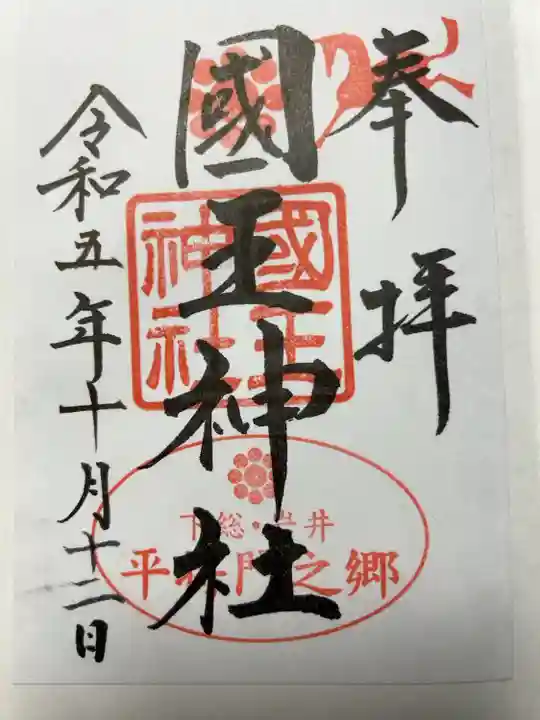 奉拝
國王神社
國王
神社
下総・岩井
平将門之郷
令和五年十月十二日